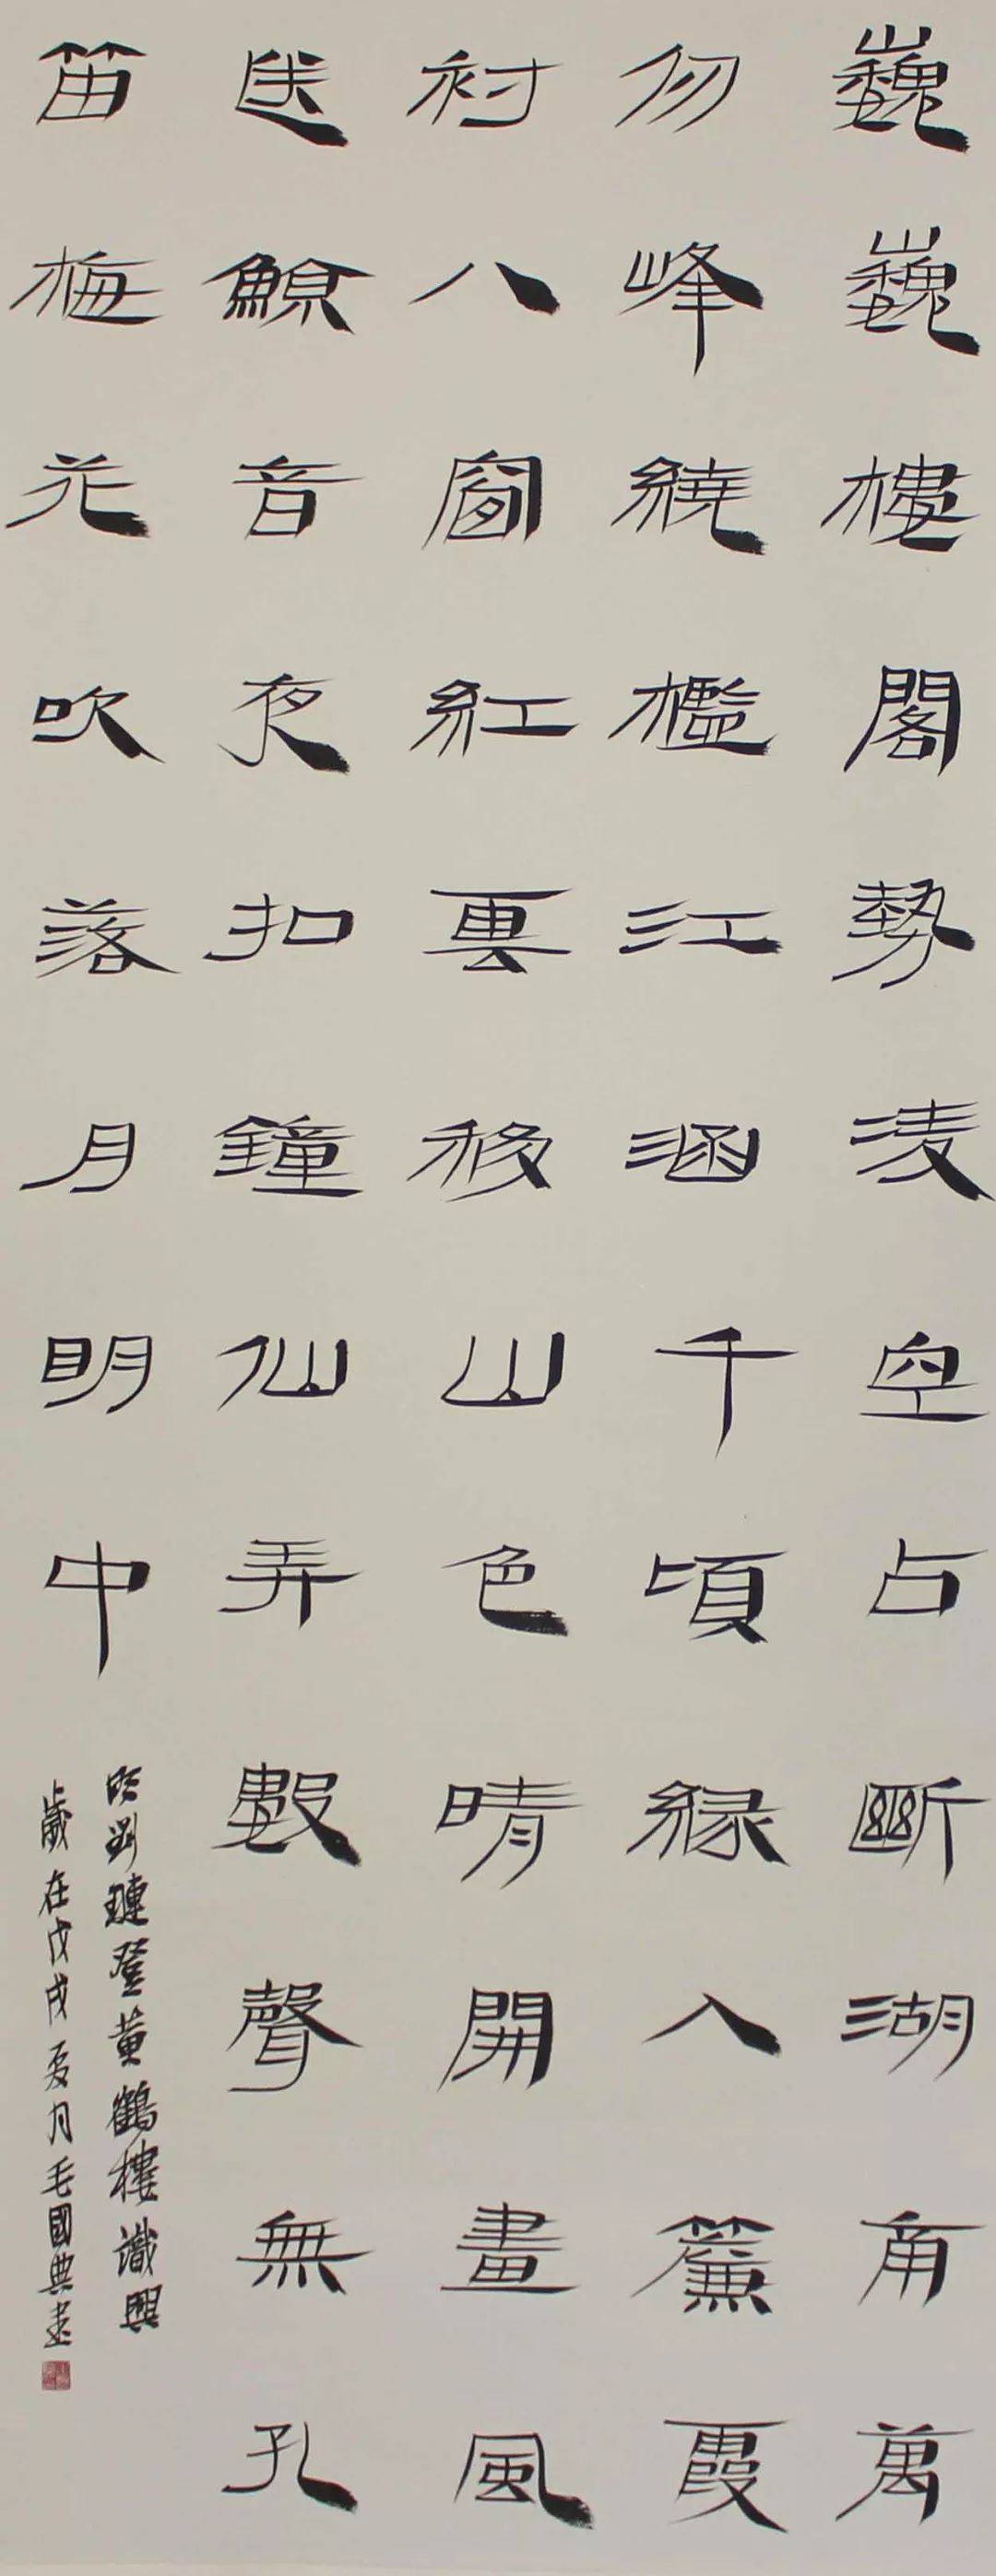 巍巍樓閣勢淩空占斷湖甪萬
仞峰繞檻江涵千頃緑入簾霞
衬八窗紅雲移山色晴開畫風
送鯨音夜扣鐘仙弄數聲無孔
笛梅花吹落月明中
明劉璉登黄鶴樓識興
歲在戊戌夏月毛國典書